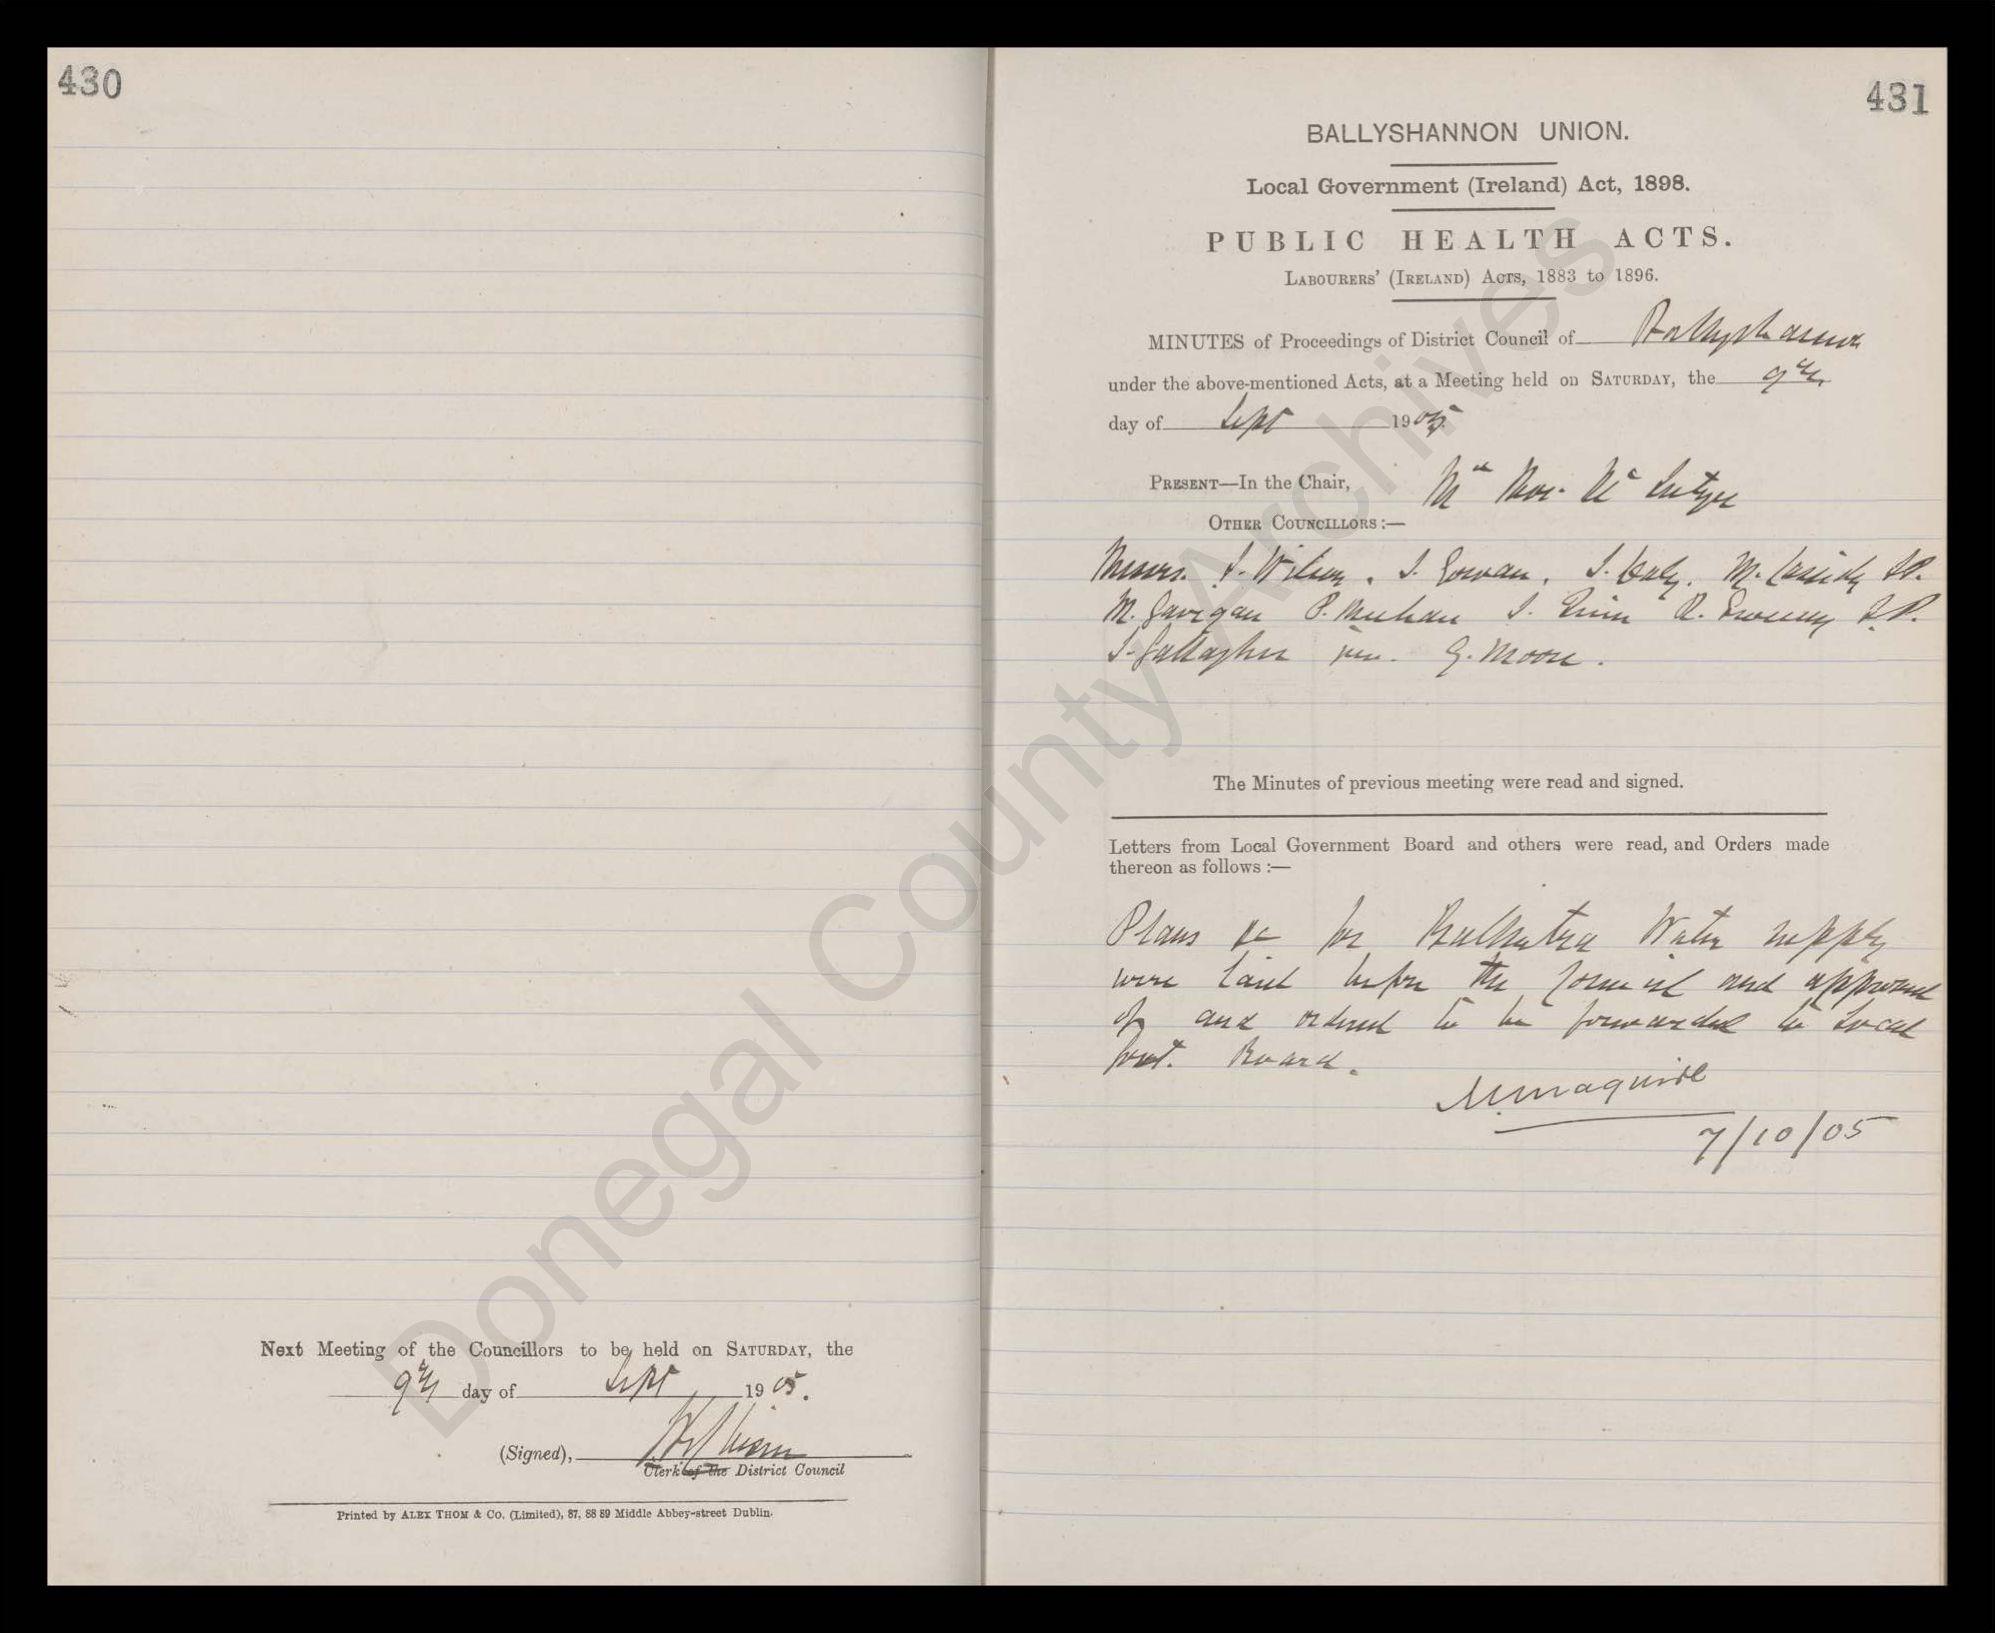 430
Next Meeting of the Councillors to be held on SATURDAY, the
9th day of Sept 1905.
(Signed),
Clerk of the District Council
Printed by ALEX THOM & Co. (Limited), 87, 88 89 Middle Abbey-street Dublin.
431
BALLYSHANNON UNION.
Local Government (Ireland) Act, 1898.
PUBLIC HEALTH ACTS.
LABOURERS' (IRELAND) ACTS, 1883 to 1896.
MINUTES of Proceedings of District Council of Ballyshannon
under the above-mentioned Acts, at a Meeting held on SATURDAY, the 9th
day of Sept 1905.
PRESENT—In the Chair, Mr Thos. Mc Intyre
OTHER COUNCILLORS :—
Messrs. J. Wilson, J. Gowan, J. Daly, M. Cassidy J.P.
M. Gavigan P. Meehan J. R. Sweeny J.P.
J. Gallagher G. Moore.
The Minutes of previous meeting were read and signed.
Letters from Local Government Board and others were read, and Orders made
thereon as follows :—
Plans &c for Ballintra Water supply
were laid before the Council and approved
of and ordered to be forwarded to Local
Govt. Board.
M. Maguire
7/10/05
Donegal County Archives